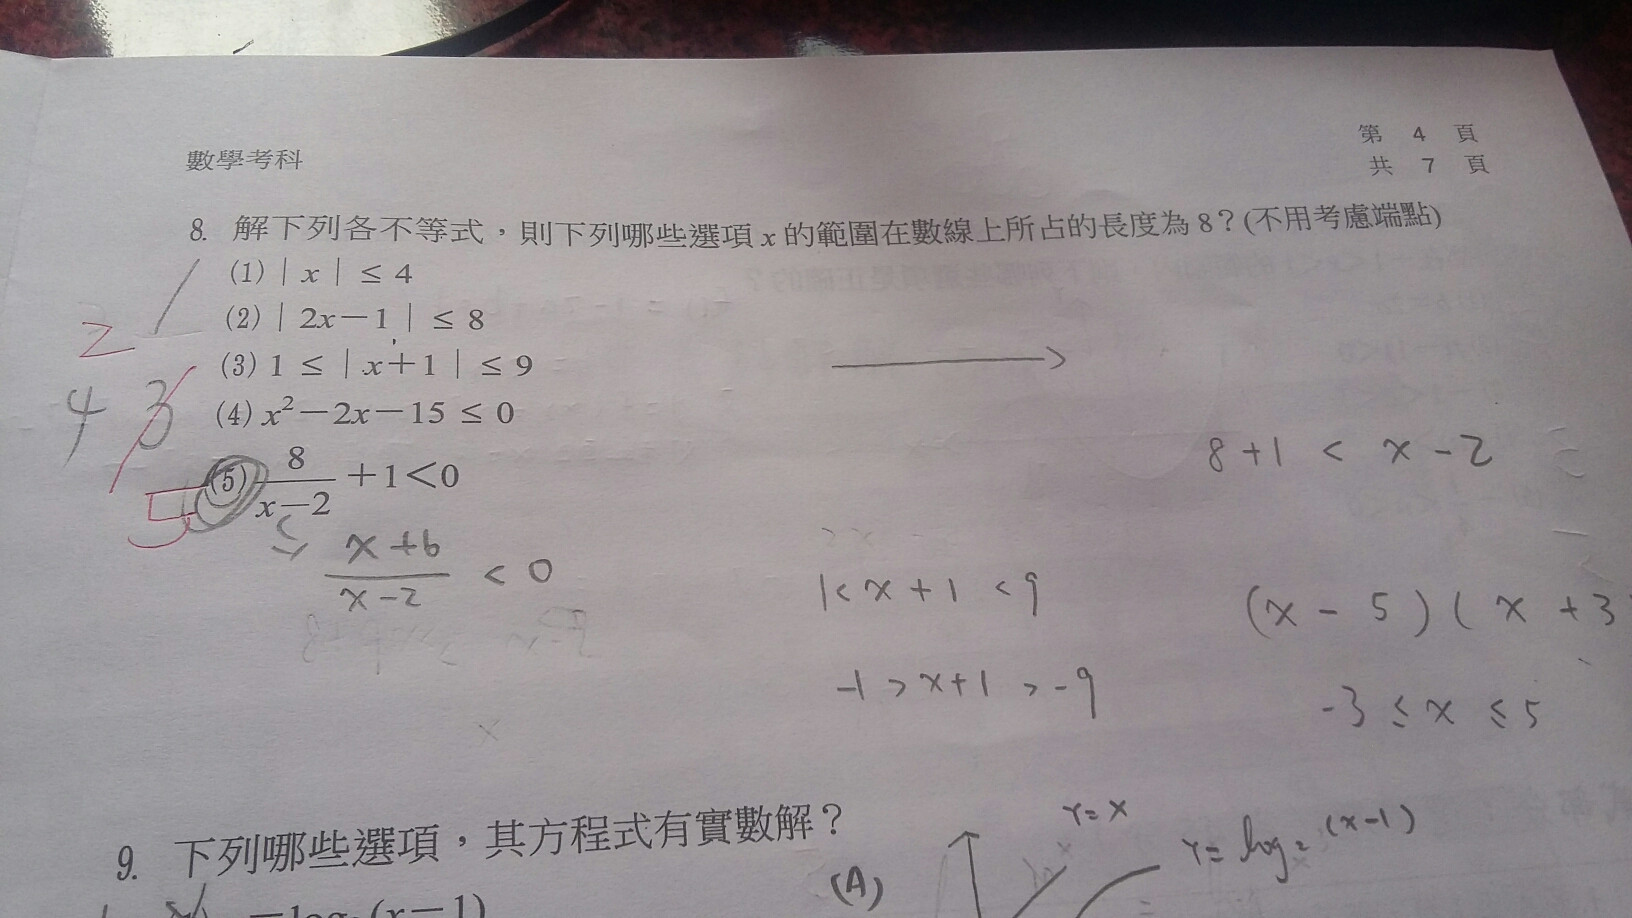 第 4 頁
數學考科
共 7 頁
8. 解下列各不等式，則下列哪些選項 x 的範圍在數線上所占的長度為 8？(不用考慮端點)
(1) | x | ≤ 4
(2) | 2x－1 | ≤ 8
2
(3) 1 ≤ | x＋1 | ≤ 9
4 3
(4) x²－2x－15 ≤ 0
8+1 < x-2
(5) 8/(x－2) ＋1<0
5
(x+6)/(x-2) < 0
1< x+1 <9
(x-5)(x+3
-1 > x+1 > -9
-3 ≤ x ≤ 5
9. 下列哪些選項，其方程式有實數解？
Y=X
Y= log₂(x-1)
(A)
＝log₂(x－1)